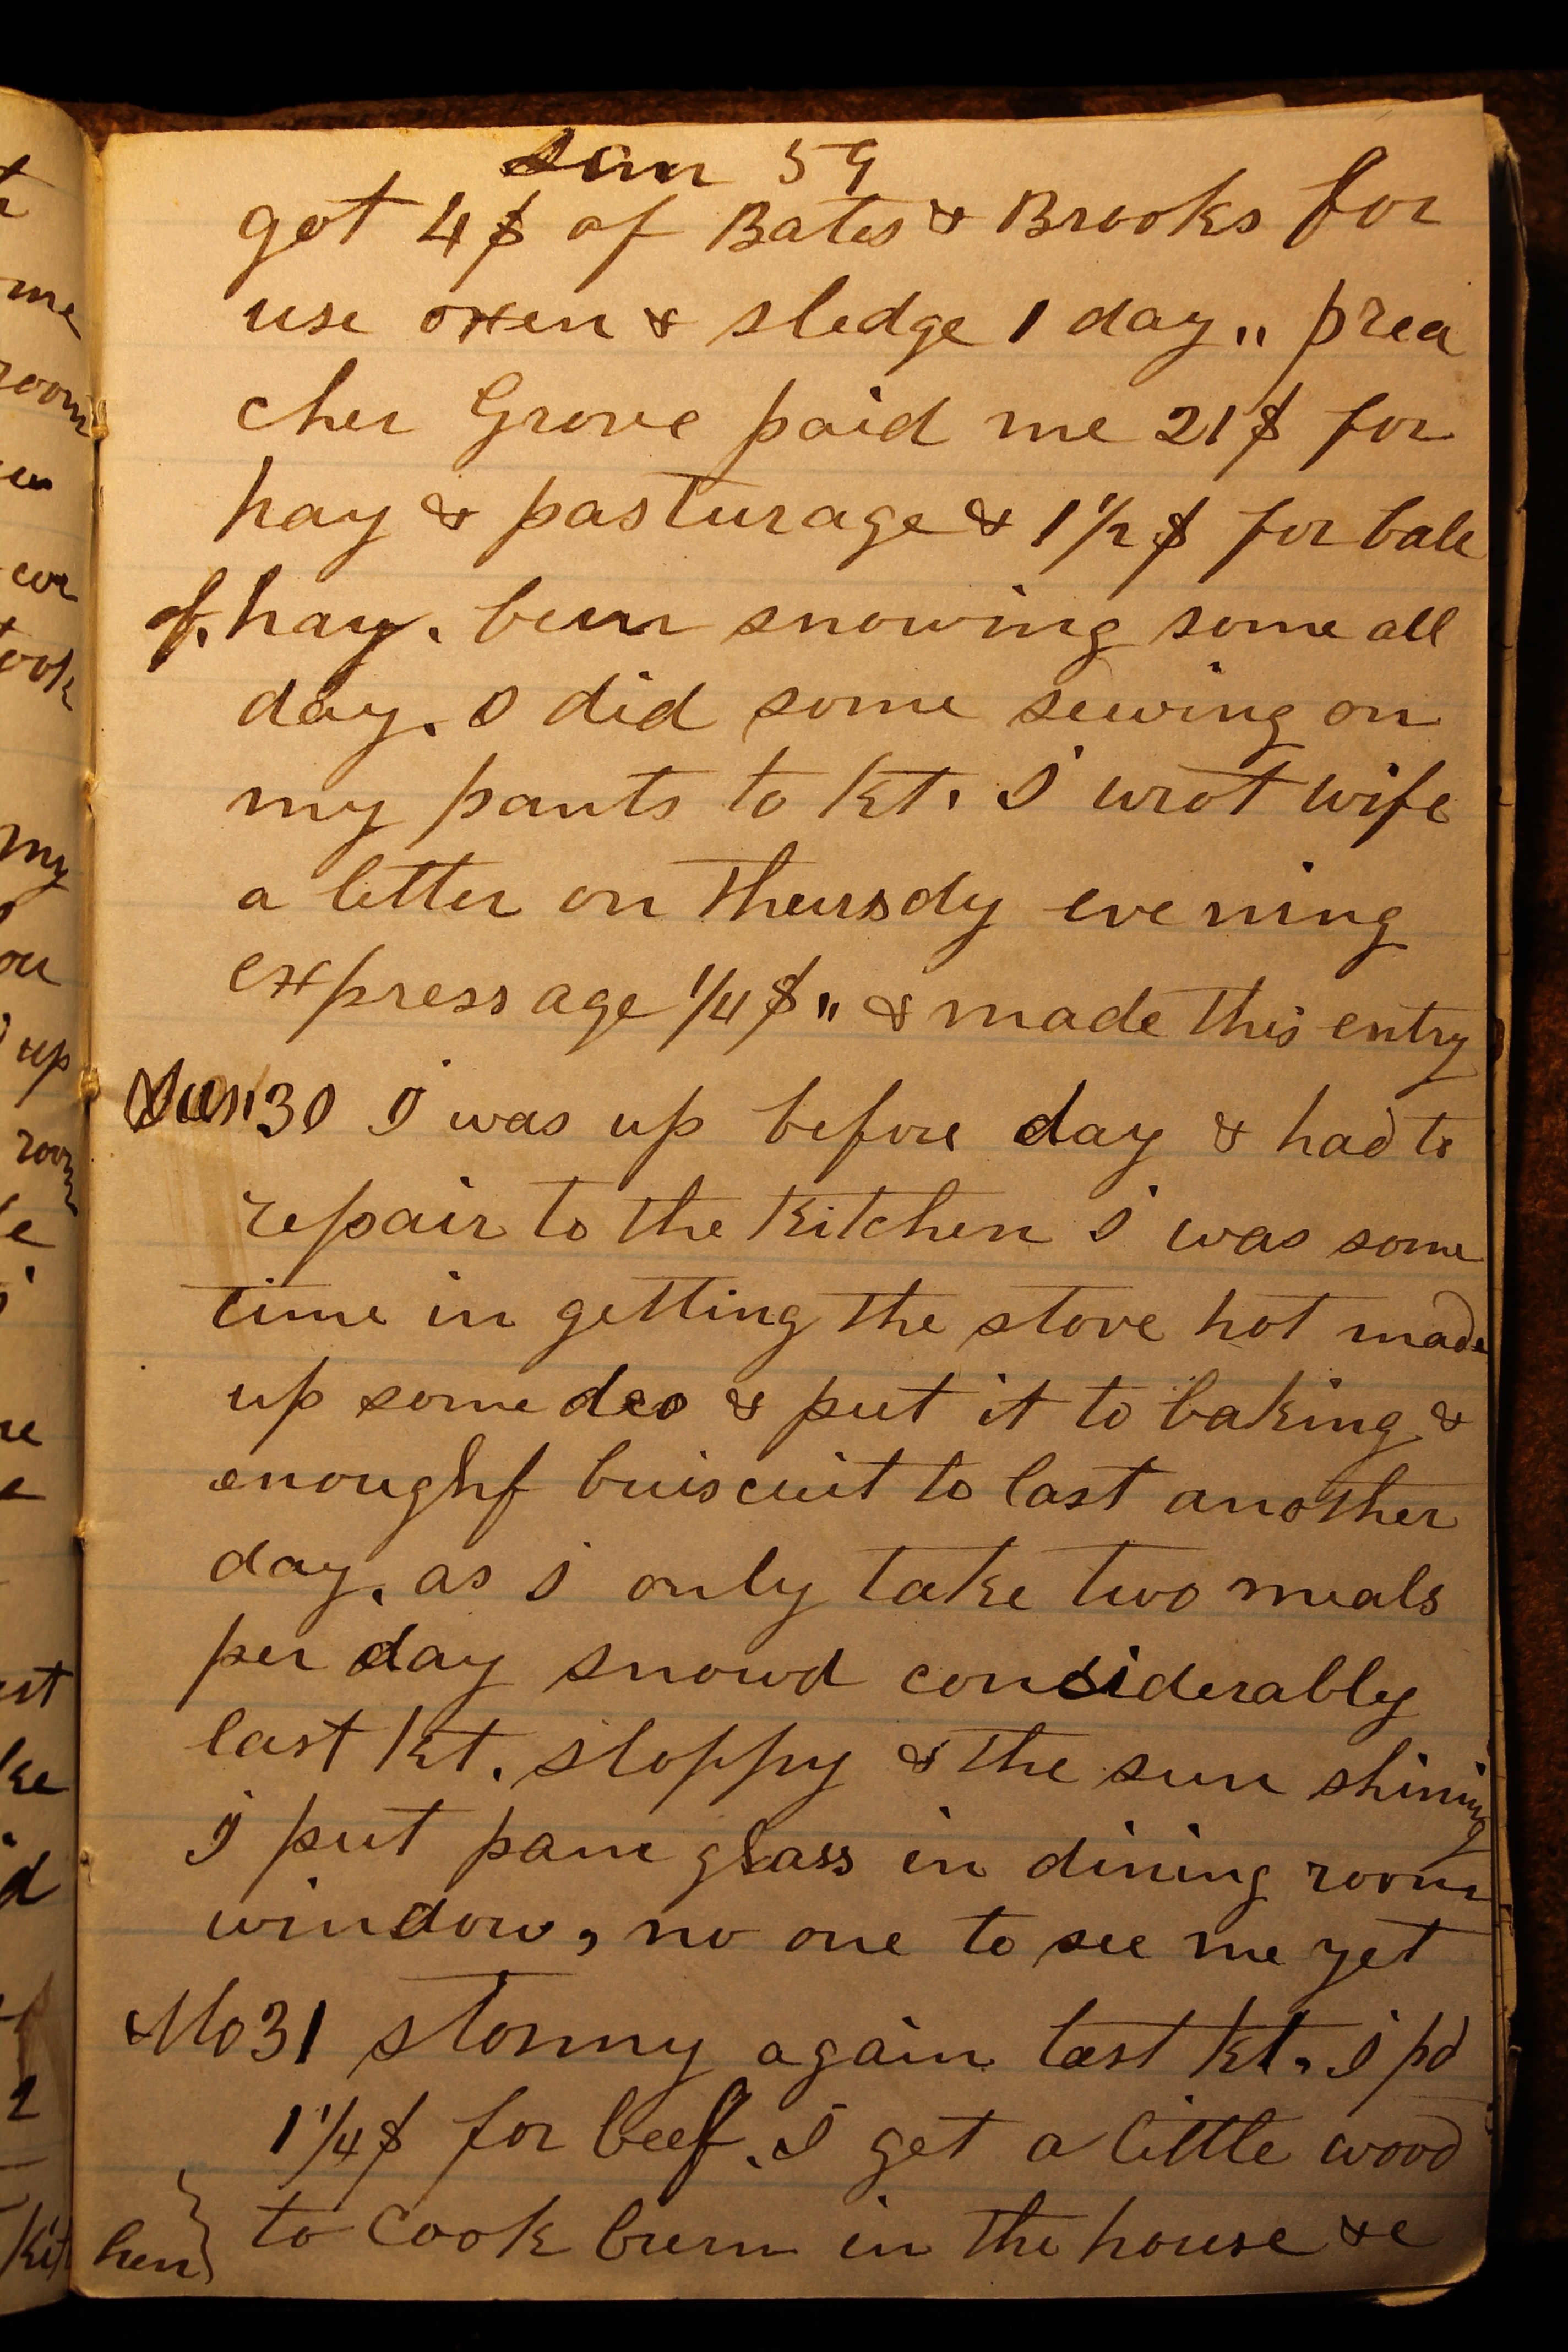 Jan 59
got 4$ of Bates & Brooks for
use oxen & sledge 1 day,, prea
cher Grove paid me 21$ for
hay & pasturage & 1 1/2 $ for bale
of. hay. been snowing some all
day. I did some sewing on
my pants to Kt. I wrot wife
a letter on Thursdy evening
expressage 1/4 $ ,, & made this entry
Sun 30 I was up before day & had to
repair to the Kitchen I was some
time in getting the stove hot made
up some deo & put it to baking &
enoughf buiscuit to last another
day. as I only take two meals
per day snowd considerably
last Kt. sloppy & the sun shining
I put pane glass in dining room
window, no one to see me yet
Mo 31 stormy again last Kt. I pd
1 1/4 $ for beef. I get a little wood
to cook burn in the house &c
hen